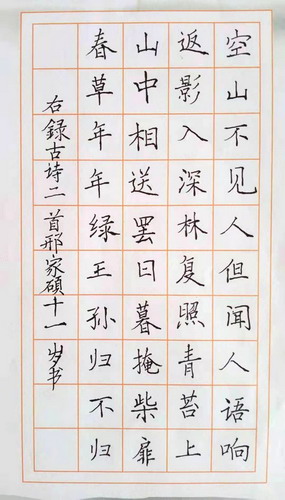 空山不见人但闻人语响
返影入深林复照青苔上
山中相送罢日暮掩柴扉
春草年年绿王孙归不归
右録古诗二首邢家碩十一岁书